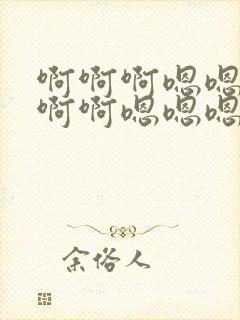 啊啊啊嗯嗯
啊啊嗯嗯嗯
余俗人